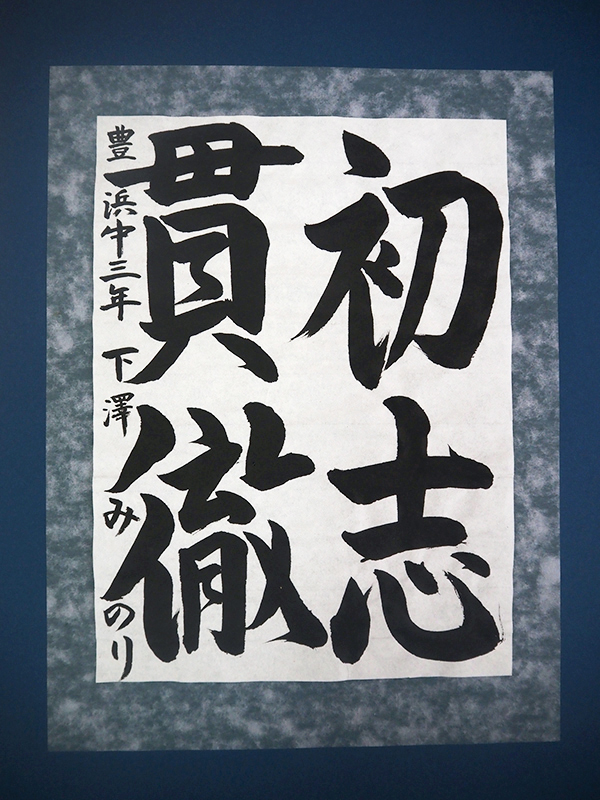 初志
貫徹
豊浜中三年 下澤みのり